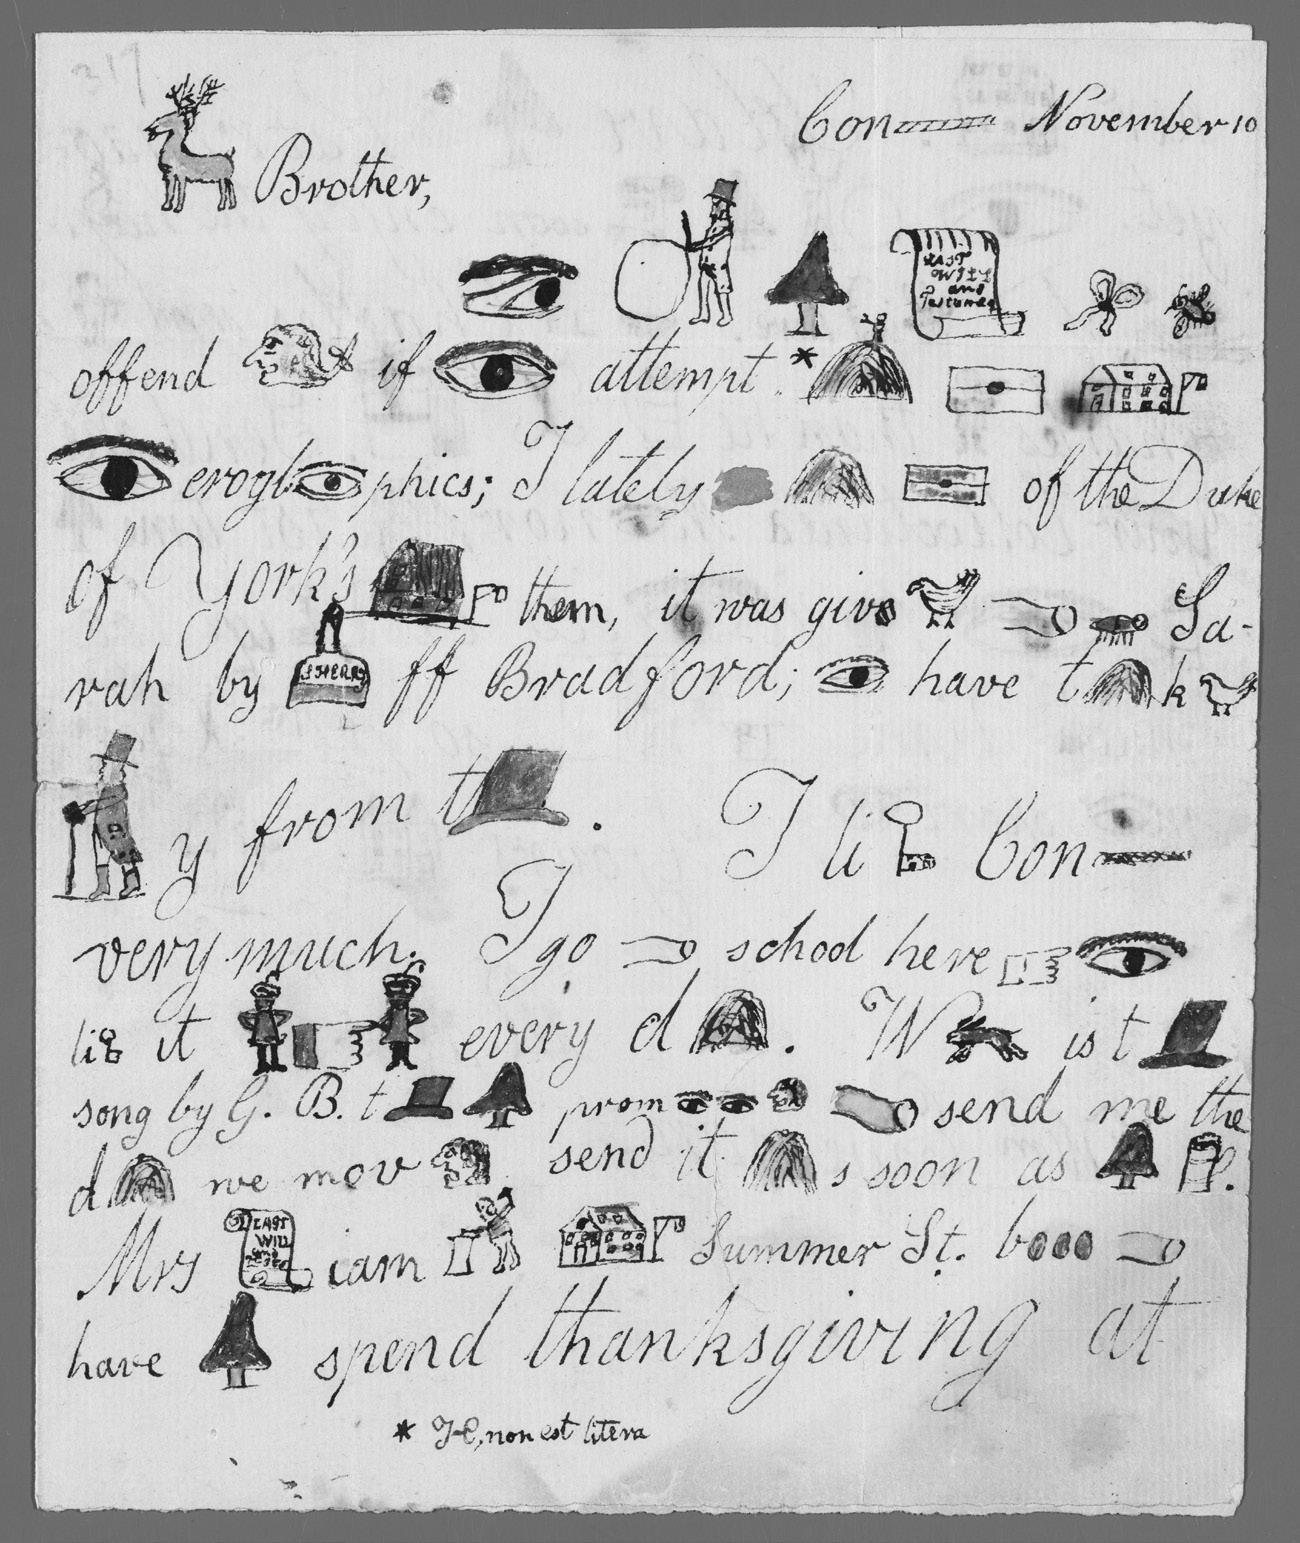 Con November 10
Brother,
LAST WILL and Testament
offend if attempt. *
eroglphics; I lately of the Duke
of York's them, it was give Sa-
rah by SHERRY ff Bradford; have t k
y from t . I li Con
very much. I go school here
li it every d . W is t
song by G. B. t prom send me the
d we mov send it s soon as
Mrs LAST WILL and iam Summer St. b
have spend thanksgiving at
* H, non est litera